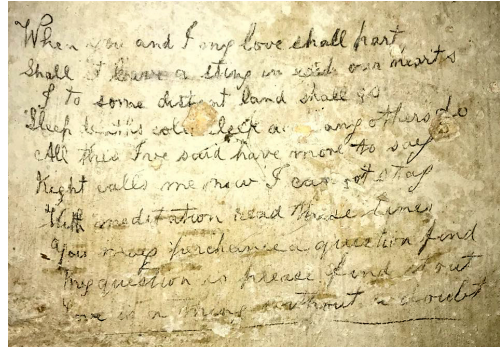 When you and I my love shall part
Shall it leave a sting in our hearts
I to some distant land shall go
Sleep death's cold sleep as many others do
All this I've said have more to say
Night calls me now I can not stay
With meditation read these lines
You may perchance a question find
My question is please find it out
Love is a thing without a doubt